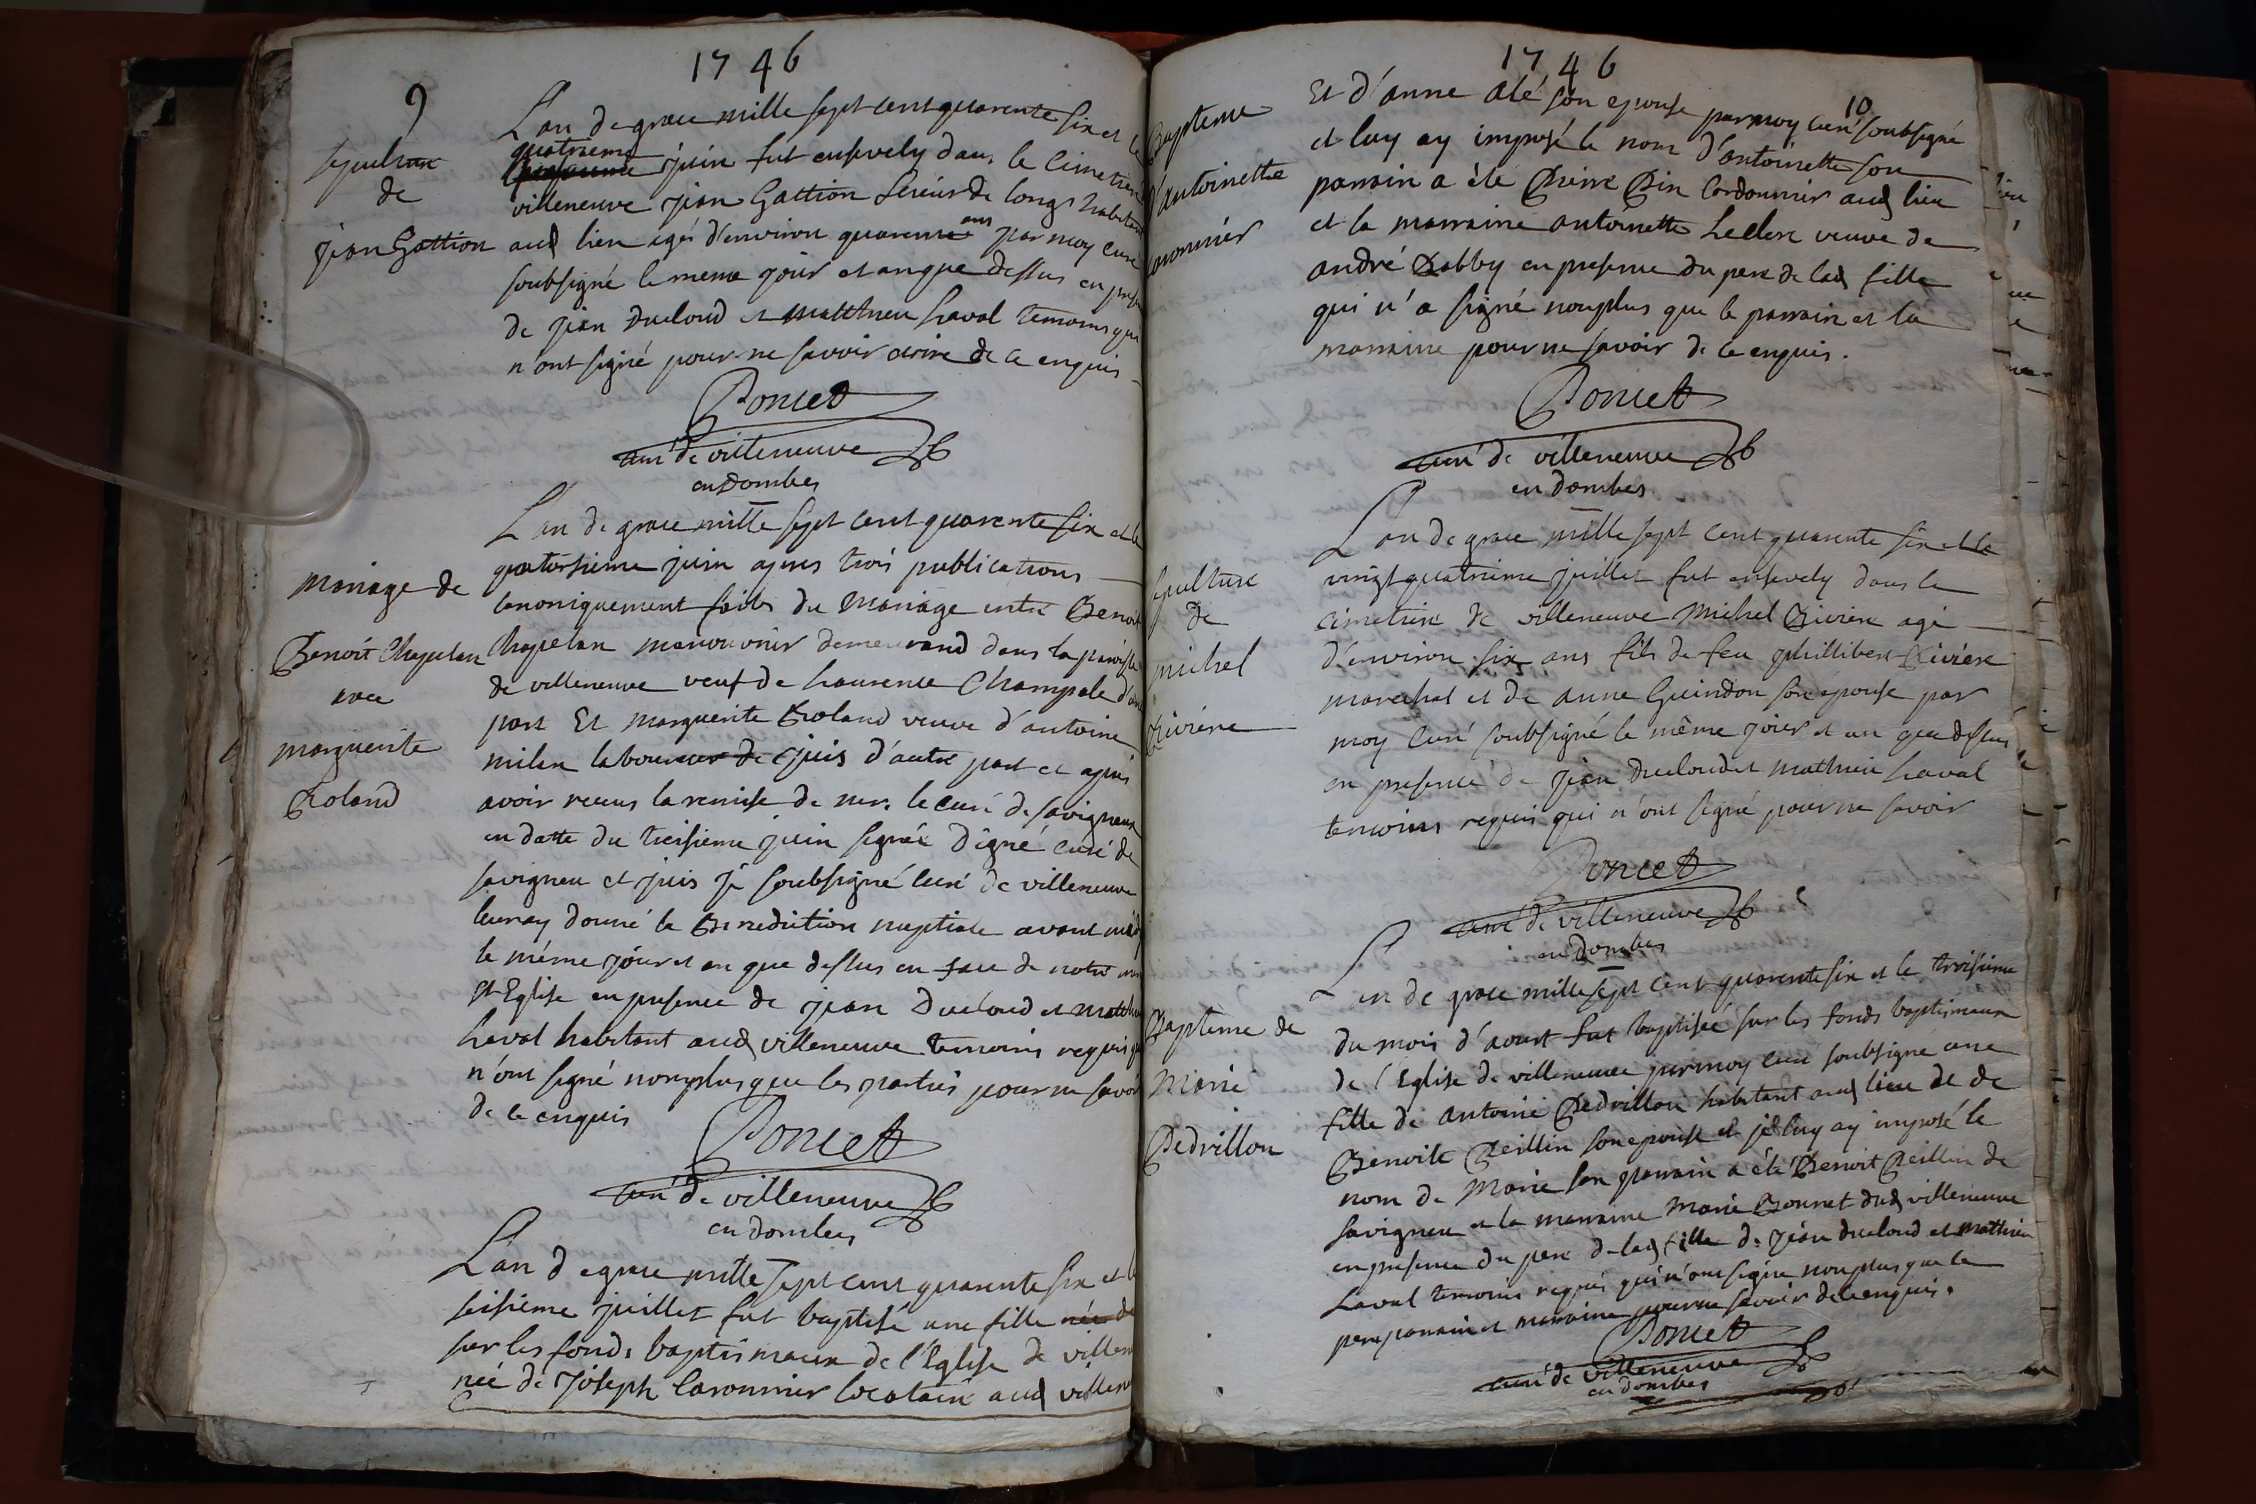 1746
9
Sepulture
de
jean Gattion
L'an de grace mille sept cent quarente six et le
quatrieme
juin fut ensevely dans le cimetiere
villeneuve jean Gattion de longs habitant
aud lien agé d'environ quarente ans par moy curé
soubsigné le meme jour et an que dessus en prese
de jean Ducloud et matthieu Laval temoins qui
n'ont signé pour ne savoir ecrire de ce enquis
Poncet
curé de villeneuve
en Dombes
Mariage de
Benoit Chapelan
avec
marguerite
Roland
L'an de grace mille sept cent quarente six et le
quatorsieme juin apres trois publications
canoniquement faites du Mariage entre Benoit
Chapelan manouvrier demeurand dans la paroisse
de villeneuve veuf de Laurence Champale d'une
part Et marguerite Roland veuve d'antoine
milan laboureur de d'autre part et apres
avoir receus la remise de mr. le curé de savigneux
en datte du treisieme juin signée Digné curé de
savigneu et puis je soubsigné curé de villeneuve
leur ay donné la Benediction nuptiale avant midy
le même jour et an que dessus en face de notre mere
Ste Eglise en presence de jean Ducloud et matthieu
Laval habitant aud villeneuve temoins requis qui
n'ont signé nomplus que les parties pour ne savoir
de ce enquis
Poncet
curé de villeneuve
en dombes
L'an de grace mille sept cent quarente six et le
seisieme juillet fut baptisé une fille née de
sur les fonds baptismaux de l'Eglise de villen
née de Joseph Caronnier locataire aud villen
1746
10
Bapteme
d'antoinette
Caronnier
Et d'anne Alé son epouse par moy curé soubsigné
et luy ay imposé le nom d'antoinette son
parrain a été Pierre Pin Cordonnier aud lieu
et la marraine antoinette Leclerc veuve de
andré Dobby en presence du pere de lad fille
qui n'a signé nonplus que le parrain et la
marraine pour ne savoir de ce enquis.
Poncet
curé de villeneuve
en dombes
Sepulture
de
michel
Riviere
L'an de grace mille sept cent quarente six et le
vingt quatrieme juillet fut ensevely dans le
cimetiere de villeneuve Michel Riviere agé
d'environ six ans fils de feu phillibert Riviere
marechal et de anne Guindon son epouse par
moy curé soubsigné le même jour et an que dessus
en presence de jean ducloud et mathieu Laval
temoins requis qui n'ont signé pour ne savoir
Poncet
curé de villeneuve
en Dombes
Bapteme de
Marie
Pedrillon
L'an de grace mille sept cent quarente six et le troisieme
du mois d'aoust fut baptisée sur les fonds baptismaux
de l'Eglise de villeneuve par moy curé soubsigné une
fille de antoine Pedrillon habitant aud lieu de de
Benoite Peillin son epouse et je luy ay imposé le
nom de Marie son parrain a été Benoit Peillin de
savigneu et la marraine Marie Bonnet dud villeneuve
en presence du pere de lad fille de jean ducloud et matthieu
Laval temoins requis qui n'ont signé nonplus que le
pere parrain et marraine pour ne savoir de ce enquis.
Poncet
curé de villeneuve
en dombes